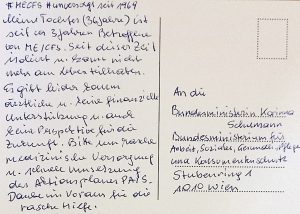 #MECFS #unversorgt seit 1969
Meine Tochter (36 Jahre) ist
seit 3 Jahren Betroffene
von ME/CFS. Seit dieser Zeit
isoliert u. kann nicht
mehr am Leben teilhaben.
Es gibt leider kaum
ärztliche u. keine finanzielle
Unterstützung u. auch
keine Perspektive für die
Zukunft. Bitte um rasche
medizinische Versorgung
u. schnelle Umsetzung
des Aktionsplanes PAIS.
Danke im Voraus für die
rasche Hilfe.
An die
Bundesministerin Korinna
Schumann
Bundesministerium für
Arbeit, Soziales, Gesundh., Pflege
und Konsumentenschutz
Stubenring 1
1010 Wien